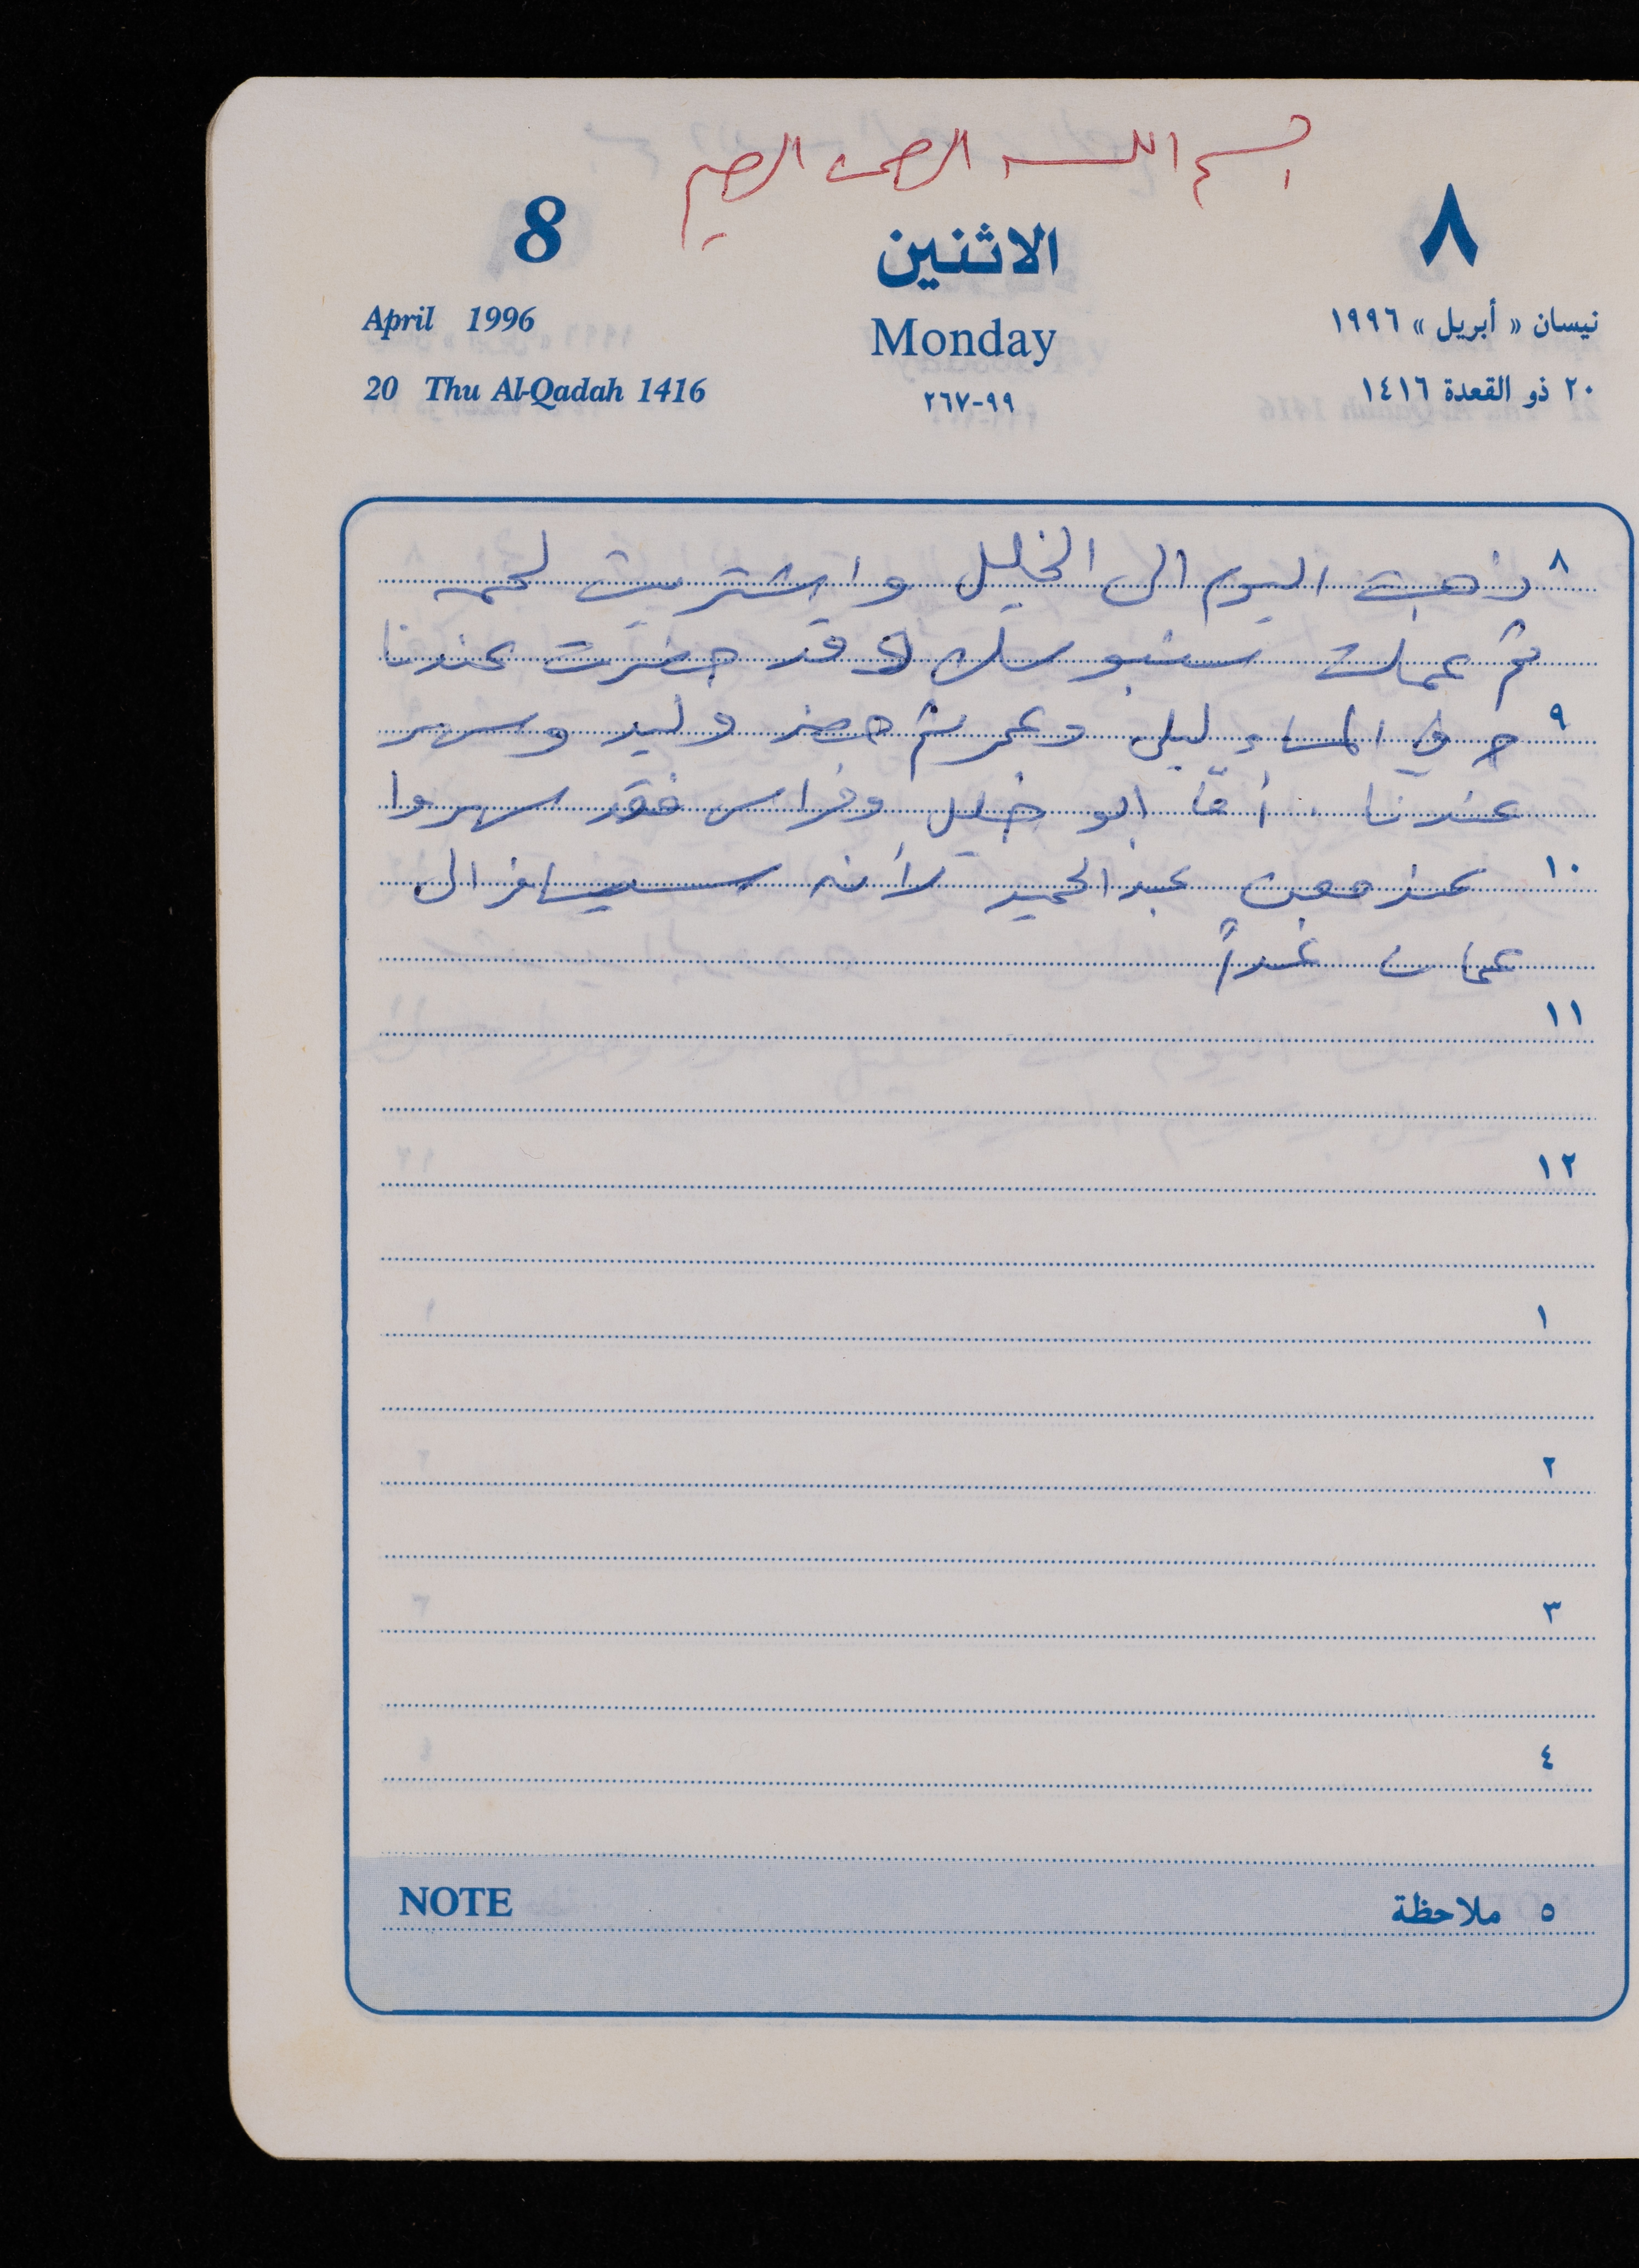 بسم الله الرحمن الرحيم
8 الاثنين ٨
April 1996 Monday نيسان « أبريل » ١٩٩٦
20 Thu Al-Qadah 1416 ٩٩-٢٦٧ ٢٠ ذو القعدة ١٤١٦
٨ ذهبت اليوم الى الخليل واشتريت لحمه
ثم عملت سنبوسك وقد حضرت عندنا
٩ في المساء ليلى وعمر ثم حضر وليد وسهر
عندنا . أمّا ابو خليل وفراس فقد سهروا
١٠ عند معن عبد الحميد لأنه سيسافر الى
عمان غداً
١١
١٢
١
٢
٣
٤
NOTE ٥ ملاحظة